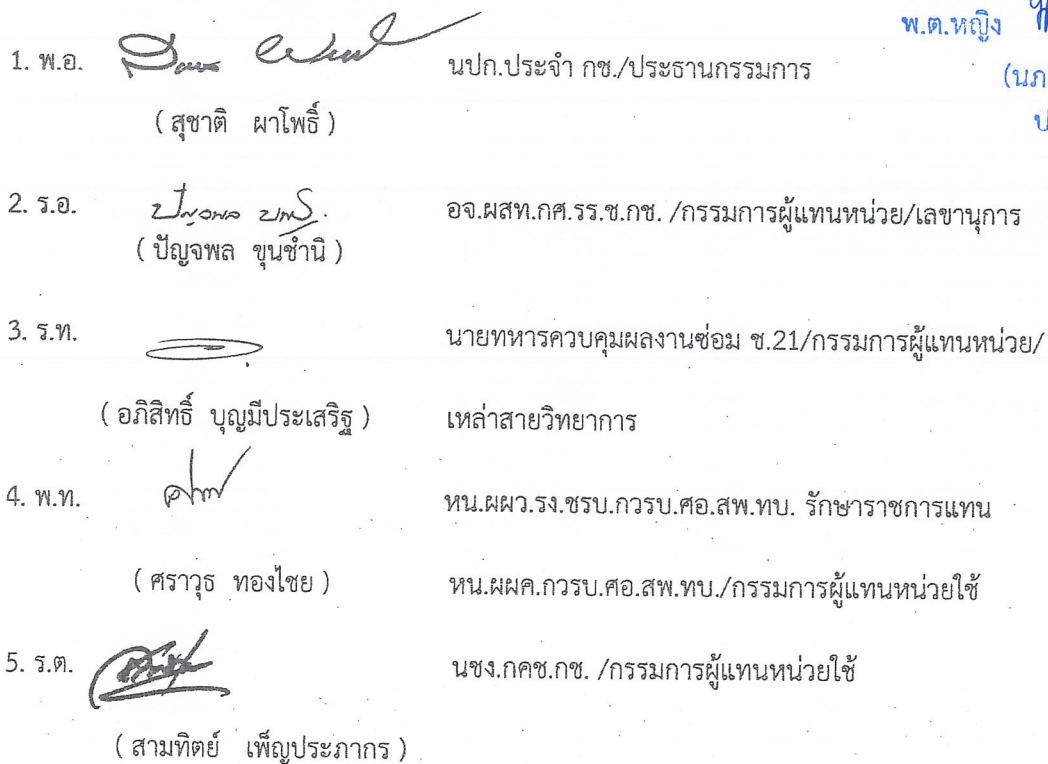 พ.ต.หญิง
(นภ
ป
1. พ.อ. นปก.ประจำ กช./ประธานกรรมการ
( สุชาติ ผาโพธิ์ )
2. ร.อ. ปัญจพล อจ.ผสท.กศ.รร.ช.กช. /กรรมการผู้แทนหน่วย/เลขานุการ
( ปัญจพล ขุนชำนิ )
3. ร.ท. นายทหารควบคุมผลงานซ่อม ช.21/กรรมการผู้แทนหน่วย/
( อภิสิทธิ์ บุญมีประเสริฐ ) เหล่าสายวิทยาการ
4. พ.ท. หน.ผผว.รง.ซรบ.กวรบ.ศอ.สพ.ทบ. รักษาราชการแทน
( ศราวุธ ทองไชย ) หน.ผผค.กวรบ.ศอ.สพ.ทบ./กรรมการผู้แทนหน่วยใช้
5. ร.ต. นชง.กคช.กช. /กรรมการผู้แทนหน่วยใช้
( สามทิตย์ เพ็ญประภากร )